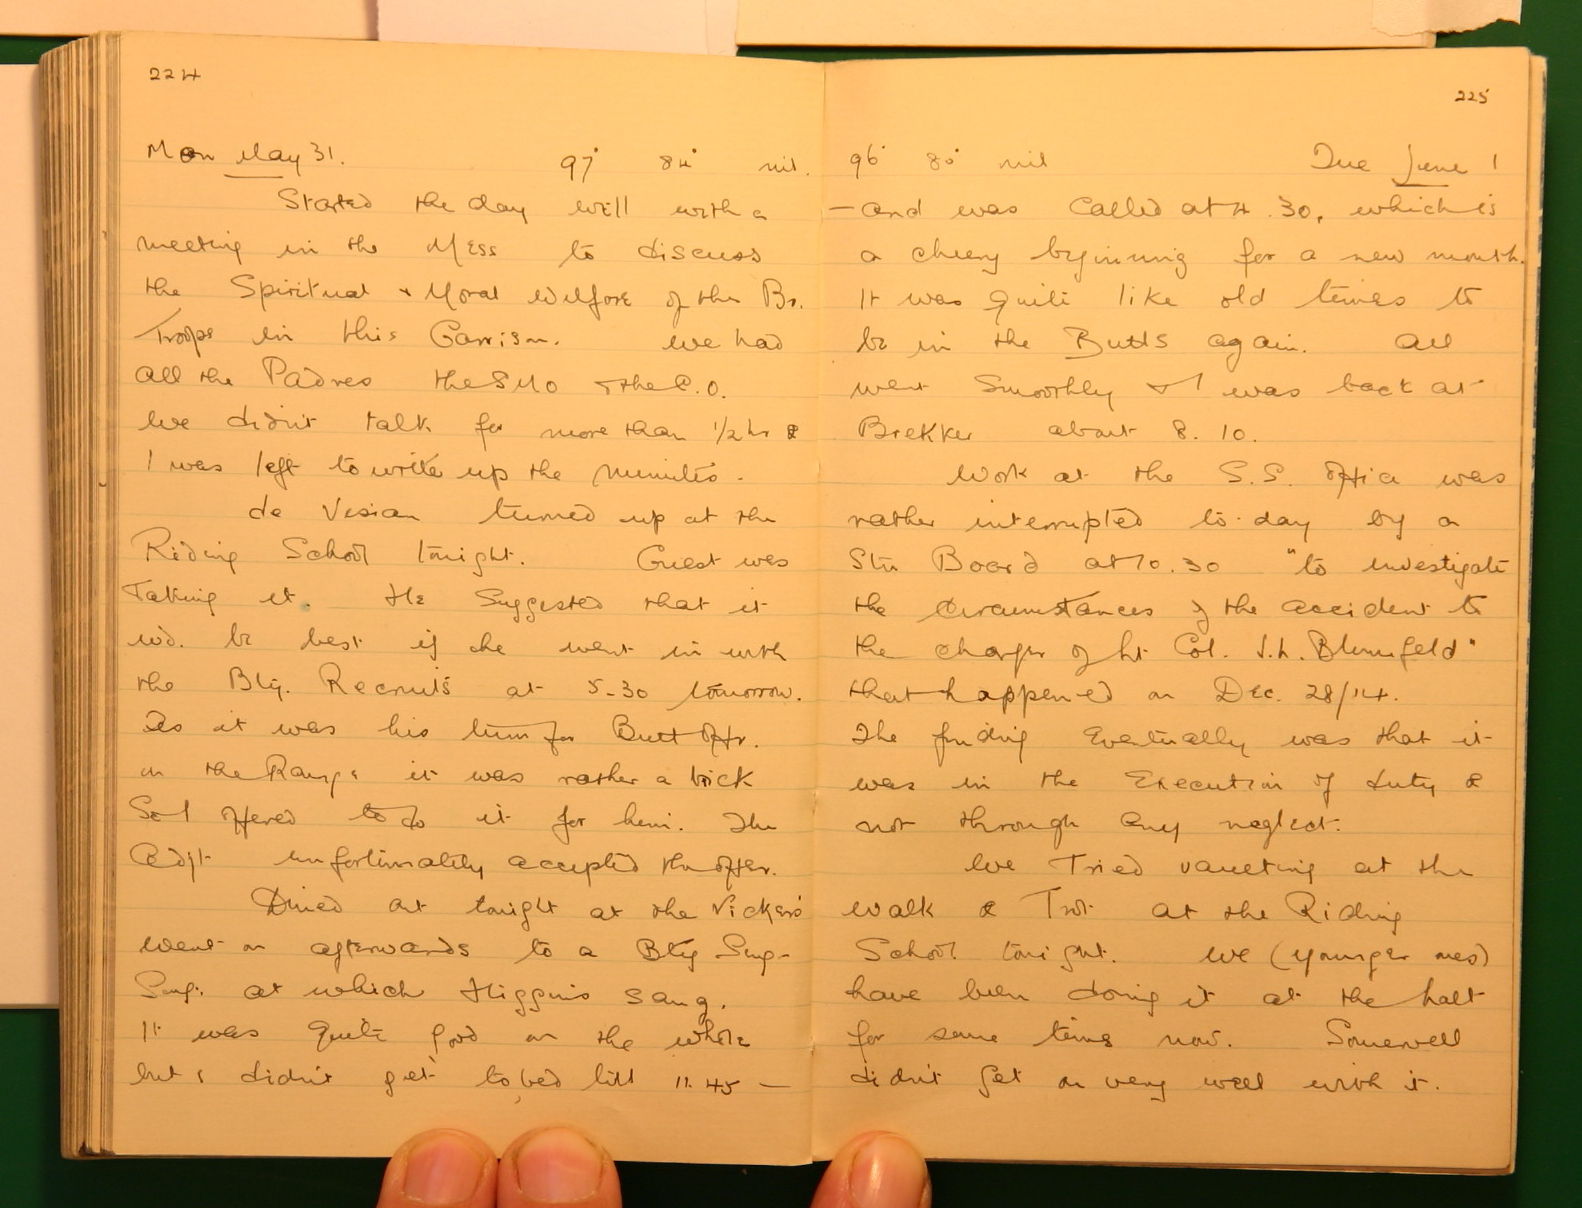 224
Mon May 31. 97° 84° nil.
Started the day well with a
meeting in the Mess to discuss
the Spiritual & Moral Welfare of the Br.
Troops in this Garrison. We had
all the Padres the SMO & the C.O.
We didn't talk for more than 1/2 hr &
I was left to write up the minutes.
de Vesian turned up at the
Riding School tonight. Guest was
Taking it. He suggested that it
wd. be best if he went in with
the Btg. Recruits at 5-30 tomorrow.
As it was his turn for Butt Offr.
on the Range it was rather a brick
So I offered to do it for him. The
Adjt unfortunately accepted the offer.
Dined out tonight at the Vickers'
went on afterwards to a Btg Sing-
Song. at which Higgins sang.
It was quite good on the whole
but I didn't get to bed till 11.45 —
225
96° 80° nil Tue June 1
— and was called at 4.30, which is
a cheery beginning for a new month.
It was quite like old times to
be in the Butts again. All
went smoothly & I was back at
Brekker about 8.10.
Work at the S.S. Office was
rather interrupted to-day by a
Stn Board at 10.30 "to investigate
the circumstances of the accident to
the charger of Lt Col. J.L. Blumfeld"
that happened on Dec. 28/14.
The finding eventually was that it
was in the Execution of duty &
not through any neglect.
We Tried vaulting at the
walk & Trot at the Riding
School tonight. We (younger ones)
have been doing it at the halt
for some time now. Somervell
didn't get on very well with it.